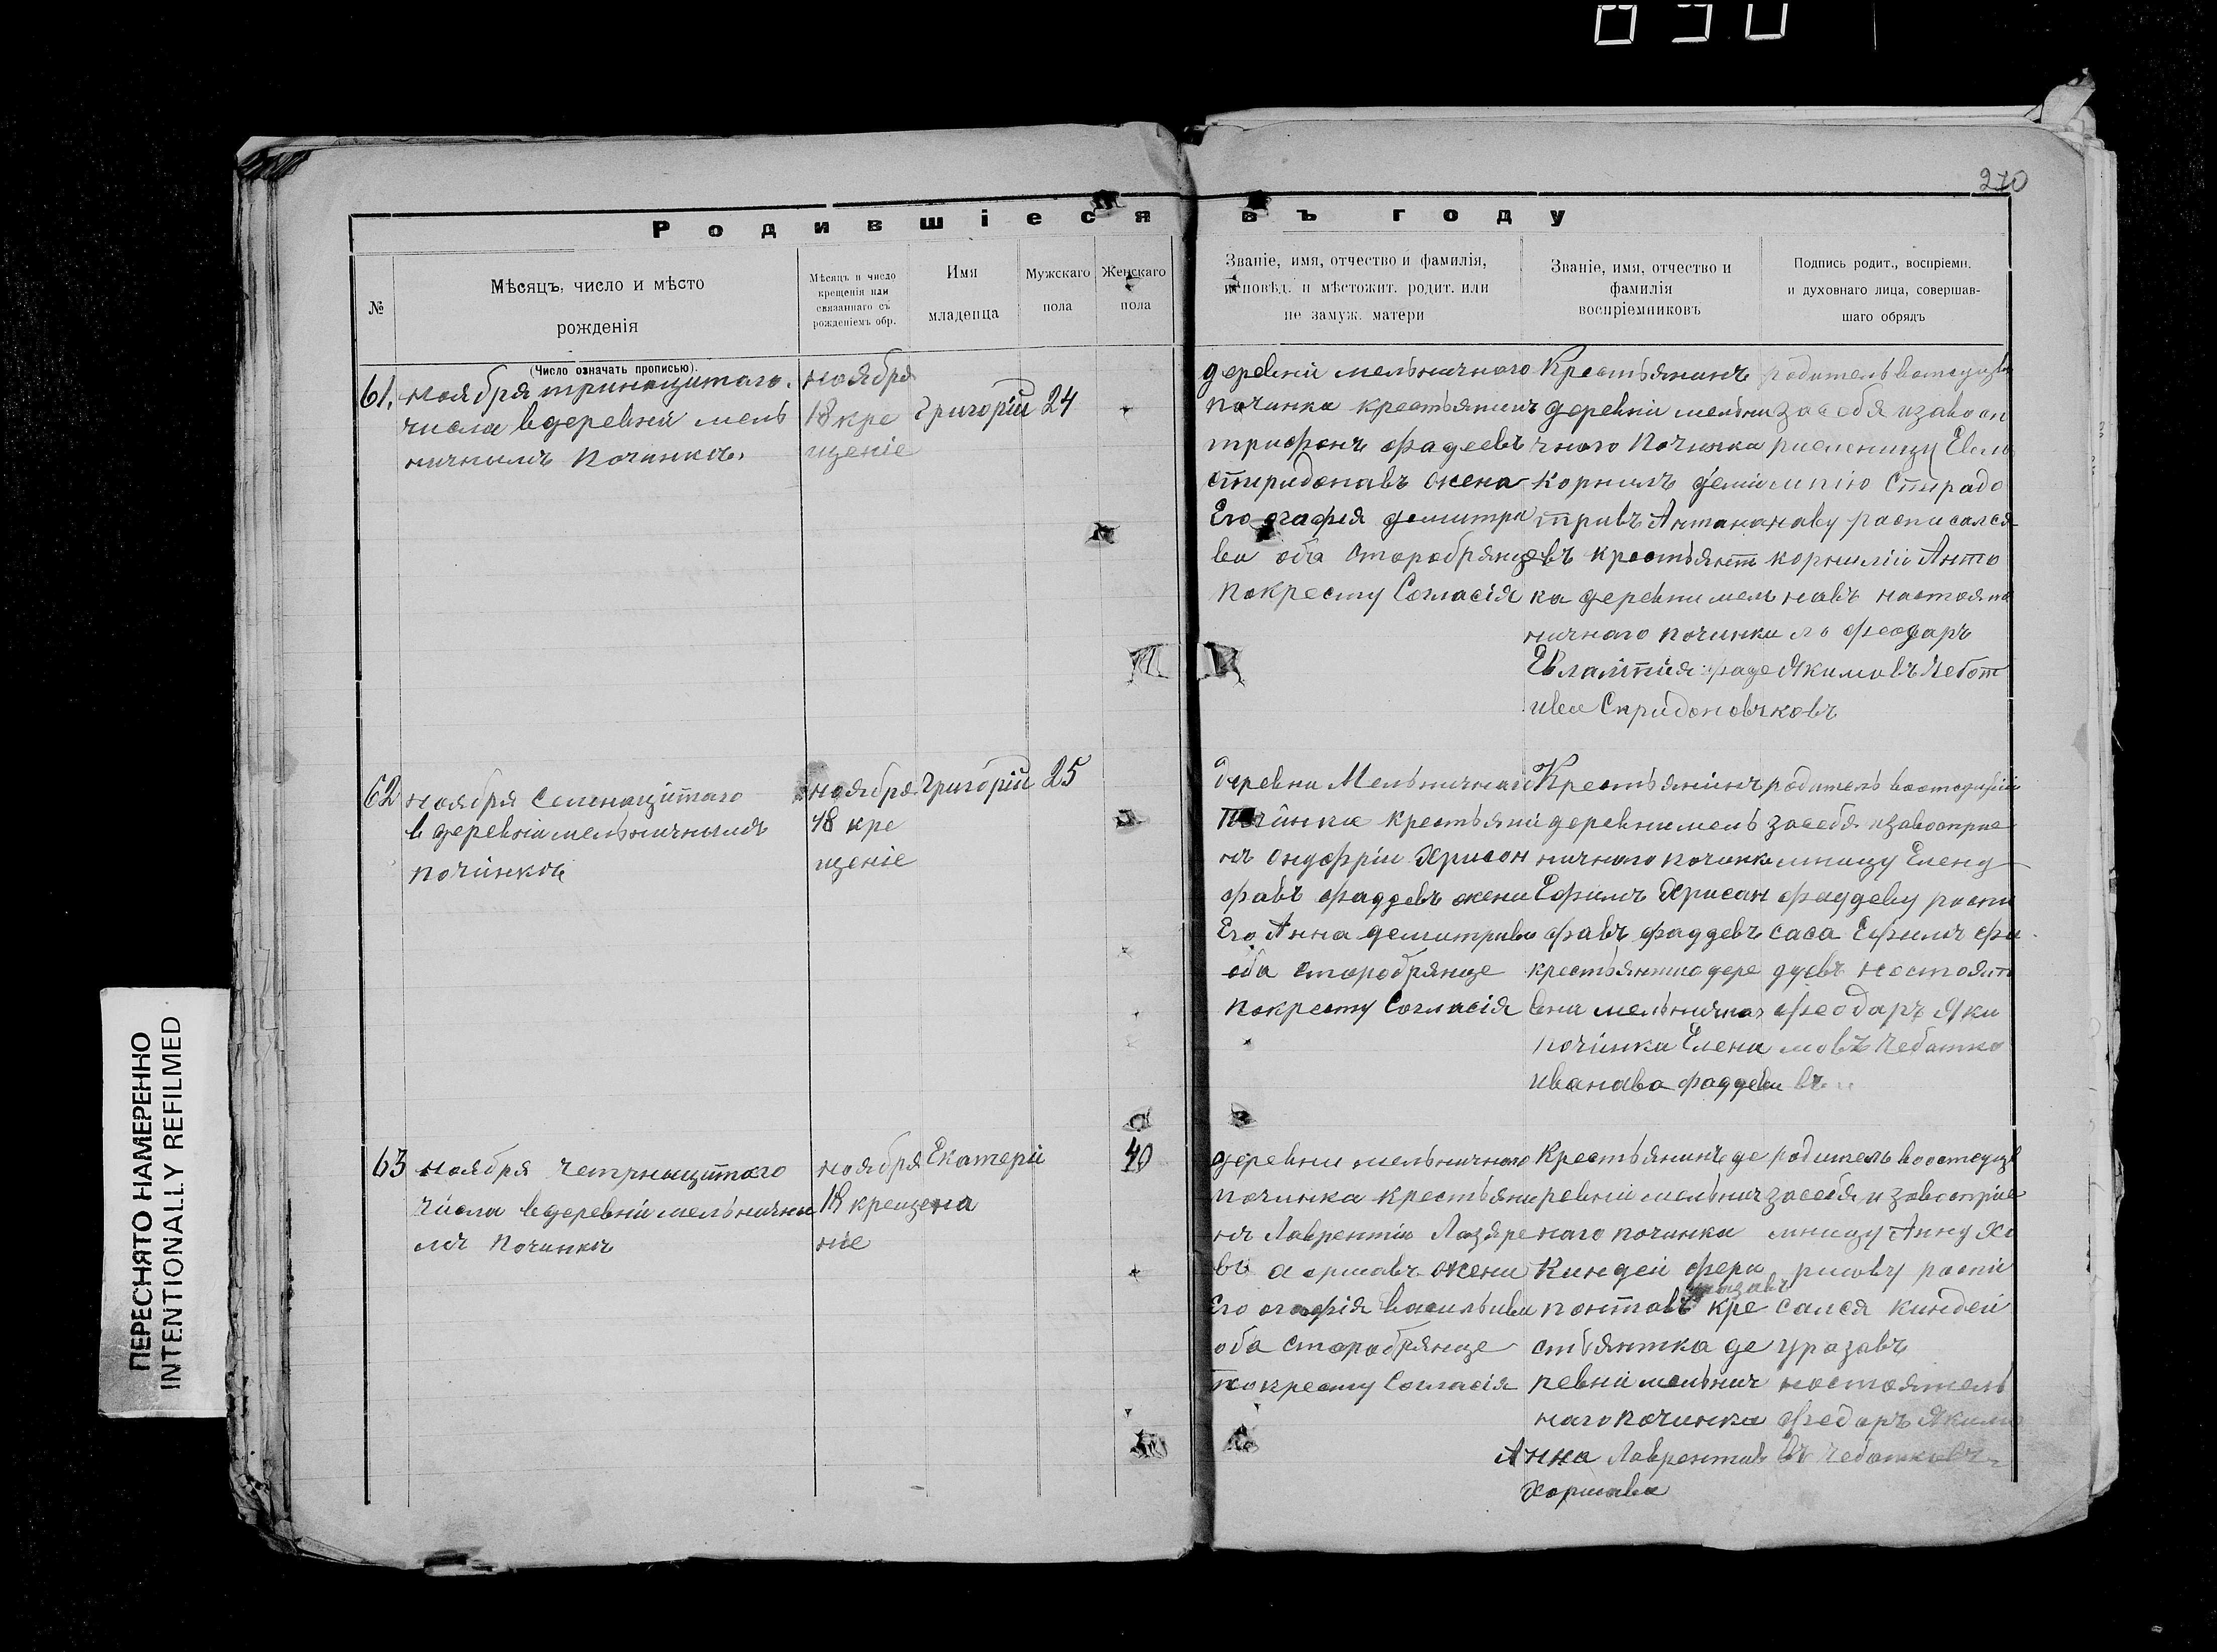 270
Родившіеся въ году
№
Мѣсяцъ, число и мѣсто
рожденія
(Число означать прописью).
Мѣсяцъ и число
крещенія или
связаннаго съ
рожденіемъ обр.
Имя
младенца
Мужскаго
пола
Женскаго
пола
Званіе, имя, отчество и фамилія,
исповѣд. и мѣстожит. родит. или
не замуж. матери
Званіе, имя, отчество и
фамилія
воспріемниковъ
Подпись родит., воспріемн.
и духовнаго лица, совершав-
шаго обрядъ
61.
ноября тринацитаго
числа вдеревни мель
ничнымъ починкъ.
ноября
18 кре
щеніе
Григорій
24
деревни мельничного
починка крестьянинъ
трифонъ фадеевъ
спиридонавъ жена
Его огафія демитри
ва оба старобрянце
покресту Согласія
Крестьянинъ
деревни мельни
чного починка
Корнилъ
Антана
въ крестьянт
ка деревни мель
ничного починки
Евлампия фаде
ива Спридонов
родитель
засебя изавосп
риемницу Евла
мпію Спирадо
наву расписался
корнилій Анто
навъ настояте
ль феодаръ
Якимовъ Чебот
ковъ
62
ноября семнацитаго
в деревни мельничнымъ
починкъ
ноября
18 кре
щеніе
Григорій
25
деревни Мельничнаго
починка крестьяни
нъ онуфріи Хрисан
фавъ фаддевъ жена
Его Анна демитрива
оба старобрянце
покресту Согласія
Крестьянинъ
деревни мель
ничного починка
Ефимъ Хрисан
фавъ фаддевъ
крестьянка дере
вни мельничнаго
починка Елена
иванава фаддева
родитель
засебя изавосприе
мницу Елену
фаддеву распи
сася Ефимъ фа
ддевъ настоят
феодаръ Яки
мовъ Чеботко
въ
63
ноября четрнацитаго
числа вдеревни мельничны
мъ починкъ
ноября
18 креще
ніе
Екатери
на
40
деревни мельничнаго
починка крестьяни
нъ Лаврентій Лазаре
въ жена
Его огафія васильива
оба старобрянце
покресту Согласія
Крестьянинъ де
ревни мельнич
наго починка
Киндей фера
понтавъ уразавъ кре
стьянтка де
ревни мельнич
наго починка
Анна Лаврентив
Хармава
родитель
засебя изавосприе
мницу Анну Ха
рмову распи
сался киндей
уразавъ
настоятель
федаръ Якимо
въ Чеботковъ
ПЕРЕСНЯТО НАМЕРЕННО
INTENTIONALLY REFILMED